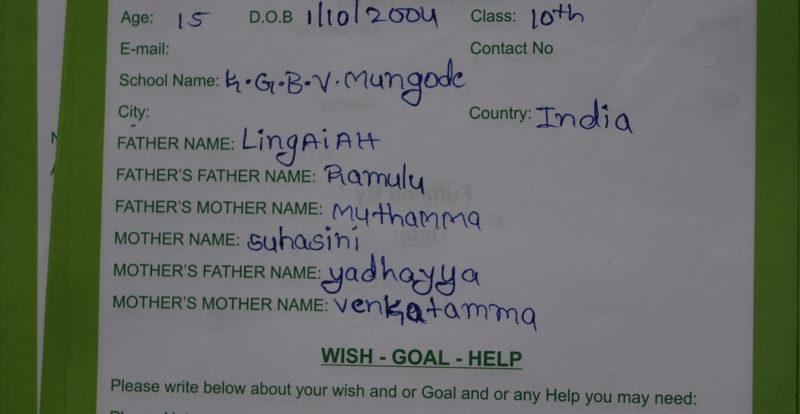 Age: 15 D.O.B 1/10/2004 Class: 10th
E-mail: Contact No
School Name: K.G.B.V.Mungode
City: Country: India
FATHER NAME: LingAiAH
FATHER'S FATHER NAME: Ramulu
FATHER'S MOTHER NAME: Muthamma
MOTHER NAME: Suhasini
MOTHER'S FATHER NAME: yadhayya
MOTHER'S MOTHER NAME: Venkatamma
WISH - GOAL - HELP
Please write below about your wish and or Goal and or any Help you may need: